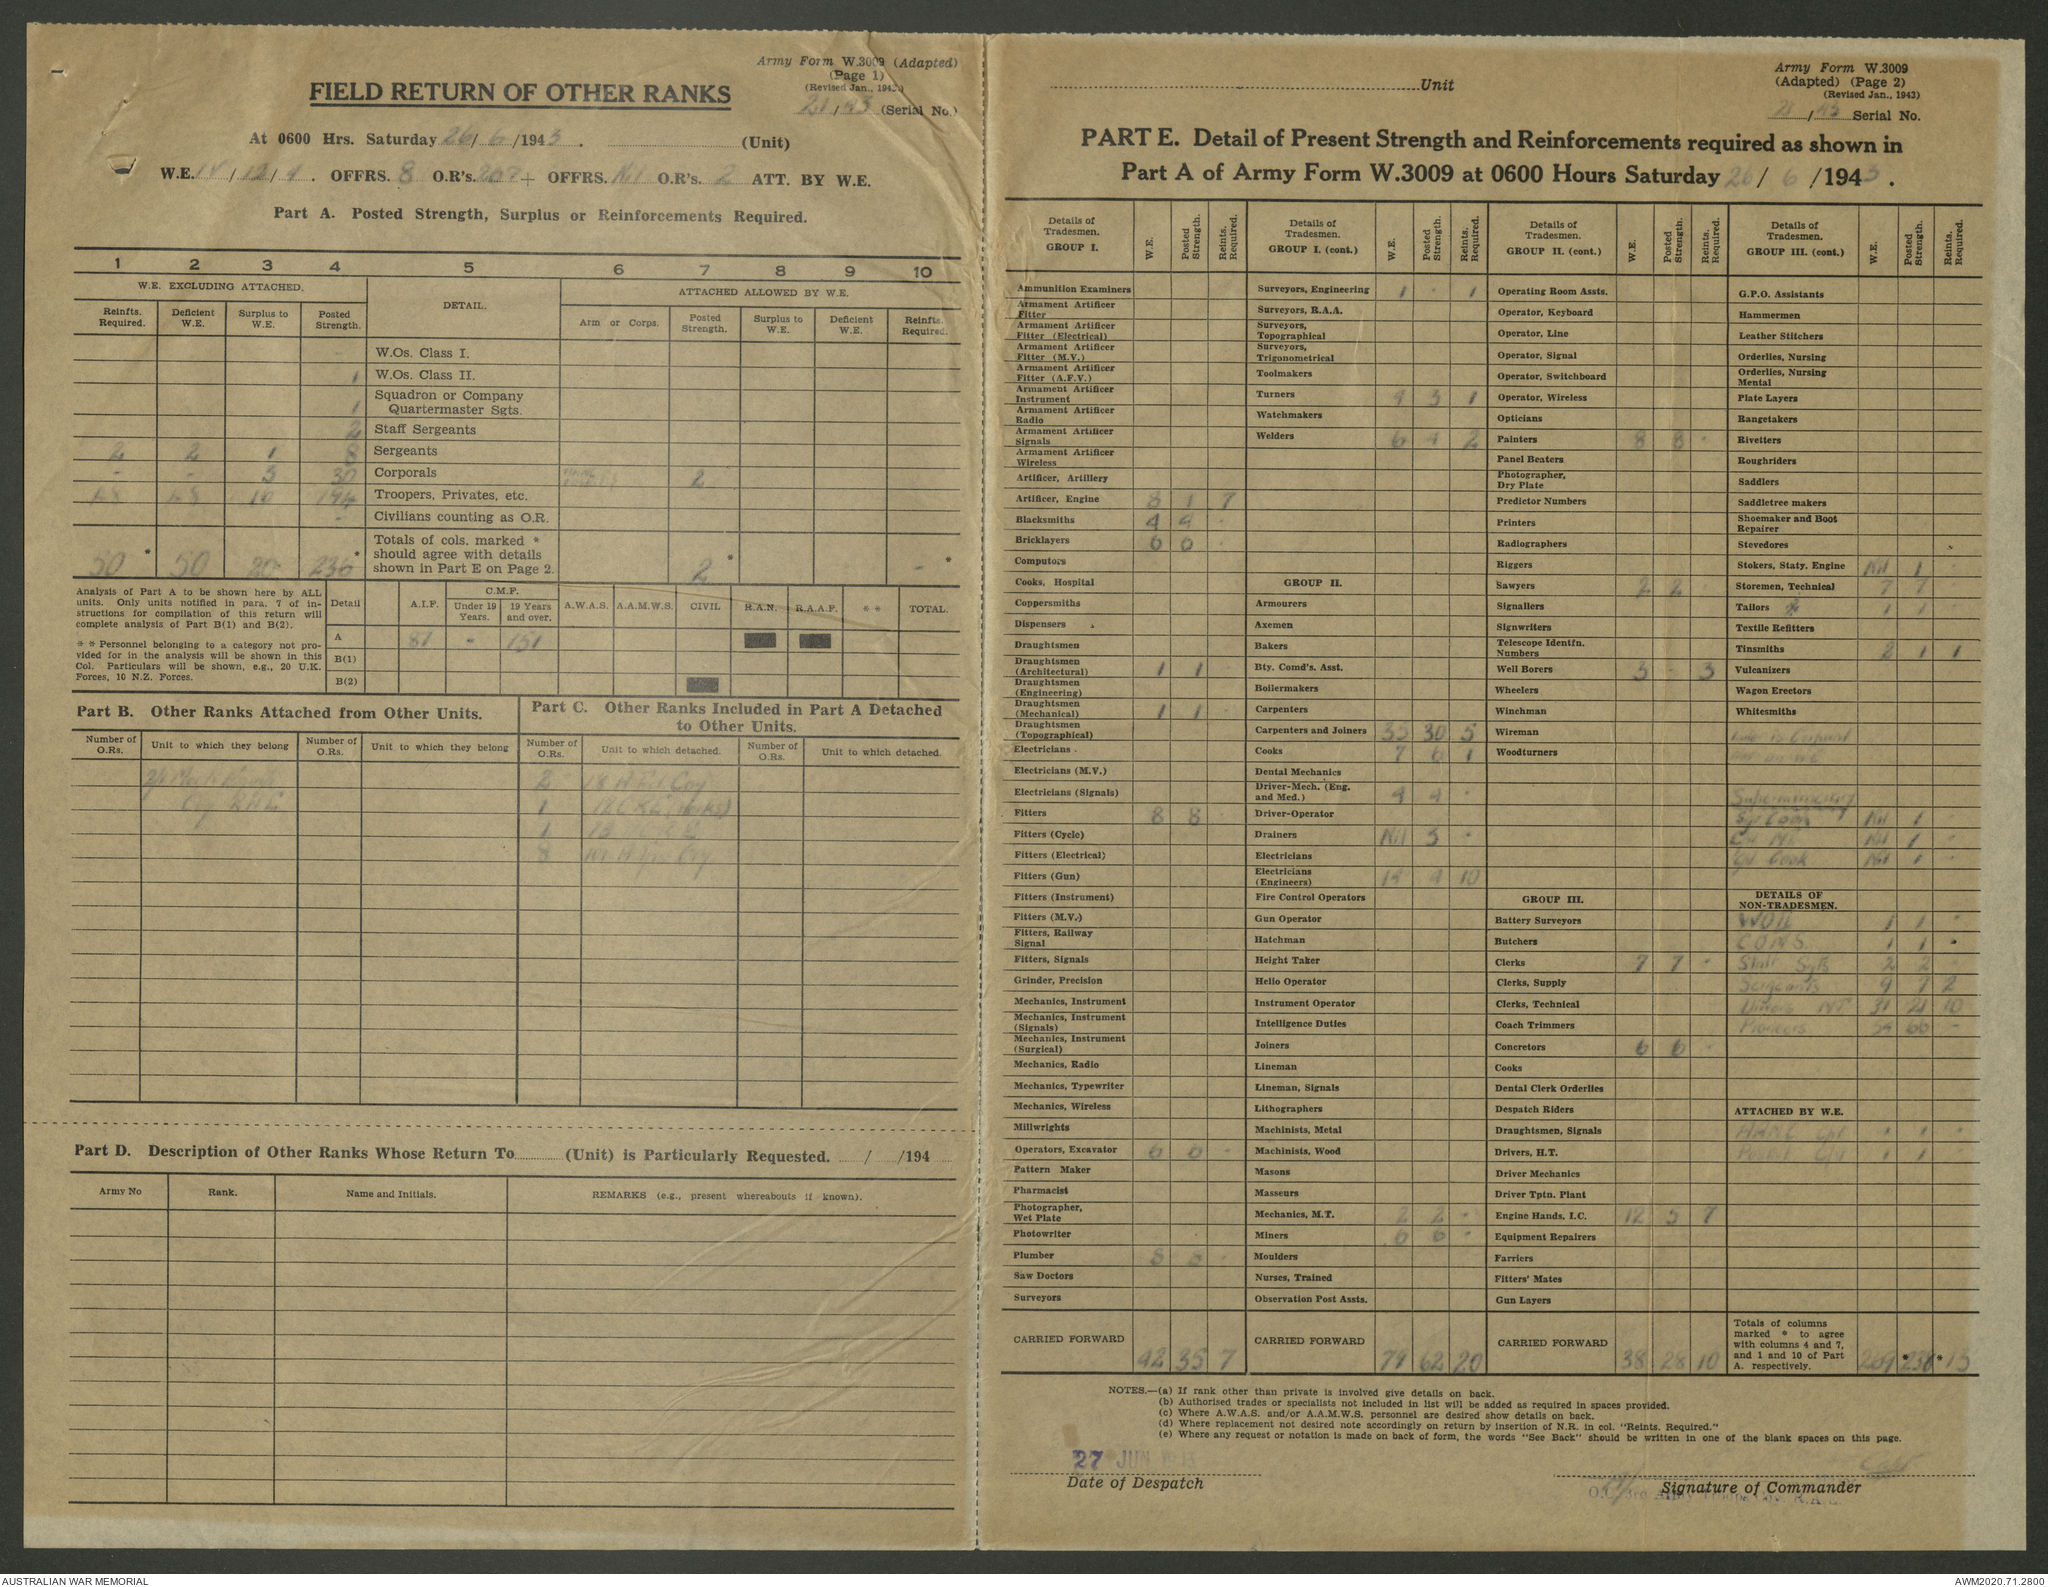 Army Form W.3009 (Adapted)
(Page 1)
(Revised Jan., 1943.)
21/43 (Serial No.)
FIELD RETURN OF OTHER RANKS
At 0600 Hrs. Saturday 26/6/1943. (Unit)
W.E. /12/4. OFFRS. 8 O.R's. 267 + OFFRS. Nil O.R's. 2 ATT. BY W.E.
Part A. Posted Strength, Surplus or Reinforcements Required.
1 2 3 4 5 6 7 8 9 10
W.E. EXCLUDING ATTACHED. DETAIL. ATTACHED ALLOWED BY W.E.
Reinfts. Required. Deficient W.E. Surplus to W.E. Posted Strength. Arm or Corps. Posted Strength. Surplus to W.E. Deficient W.E. Reinfts. Required.
W.Os. Class I.
1 W.Os. Class II.
1 Squadron or Company Quartermaster Sgts.
2 Staff Sergeants
2 2 1 8 Sergeants
- - 3 30 Corporals 2
48 48 16 194 Troopers, Privates, etc.
- Civilians counting as O.R.
50 * 50 20 236 * Totals of cols. marked * should agree with details shown in Part E on Page 2. 2 * - *
Analysis of Part A to be shown here by ALL
units. Only units notified in para. 7 of in-
structions for compilation of this return will
complete analysis of Part B(1) and B(2).
* * Personnel belonging to a category not pro-
vided for in the analysis will be shown in this
Col. Particulars will be shown, e.g., 20 U.K.
Forces, 10 N.Z. Forces.
Detail A.I.F. C.M.F. Under 19 Years. 19 Years and over. A.W.A.S. A.A.M.W.S. CIVIL R.A.N. R.A.A.F. * * TOTAL.
A 81 - 151
B(1)
B(2)
Part B. Other Ranks Attached from Other Units.
Number of O.Rs. Unit to which they belong Number of O.Rs. Unit to which they belong
Coy RAE
Part C. Other Ranks Included in Part A Detached
to Other Units.
Number of O.Rs. Unit to which detached. Number of O.Rs. Unit to which detached.
2 18 Coy
1 (Works)
1
8 Coy
Part D. Description of Other Ranks Whose Return To (Unit) is Particularly Requested. / /194
Army No Rank. Name and Initials. REMARKS (e.g., present whereabouts if known).
Unit
Army Form W.3009
(Adapted) (Page 2)
(Revised Jan., 1943)
21/43 Serial No.
PART E. Detail of Present Strength and Reinforcements required as shown in
Part A of Army Form W.3009 at 0600 Hours Saturday 26/6/1943.
Details of Tradesmen. GROUP I. W.E. Posted Strength. Reints. Required.
Ammunition Examiners
Armament Artificer Fitter
Armament Artificer Fitter (Electrical)
Armament Artificer Fitter (M.V.)
Armament Artificer Fitter (A.F.V.)
Armament Artificer Instrument
Armament Artificer Radio
Armament Artificer Signals
Armament Artificer Wireless
Artificer, Artillery
Artificer, Engine 8 1 7
Blacksmiths 4 4 -
Bricklayers 6 6 -
Computors
Cooks, Hospital
Coppersmiths
Dispensers
Draughtsmen
Draughtsmen (Architectural) 1 1 -
Draughtsmen (Engineering)
Draughtsmen (Mechanical) 1 1 -
Draughtsmen (Topographical)
Electricians
Electricians (M.V.)
Electricians (Signals)
Fitters 8 8 -
Fitters (Cycle)
Fitters (Electrical)
Fitters (Gun)
Fitters (Instrument)
Fitters (M.V.)
Fitters, Railway Signal
Fitters, Signals
Grinder, Precision
Mechanics, Instrument
Mechanics, Instrument (Signals)
Mechanics, Instrument (Surgical)
Mechanics, Radio
Mechanics, Typewriter
Mechanics, Wireless
Millwrights
Operators, Excavator 6 6 -
Pattern Maker
Pharmacist
Photographer, Wet Plate
Photowriter
Plumber 8 8 -
Saw Doctors
Surveyors
CARRIED FORWARD 42 35 7
Details of Tradesmen. GROUP I. (cont.) W.E. Posted Strength. Reints. Required.
Surveyors, Engineering 1 - 1
Surveyors, R.A.A.
Surveyors, Topographical
Surveyors, Trigonometrical
Toolmakers
Turners 4 3 1
Watchmakers
Welders 6 4 2
GROUP II.
Armourers
Axemen
Bakers
Bty. Comd's. Asst.
Boilermakers
Carpenters
Carpenters and Joiners 35 30 5
Cooks 7 6 1
Dental Mechanics
Driver-Mech. (Eng. and Med.) 4 4 -
Driver-Operator
Drainers Nil 3 -
Electricians
Electricians (Engineers) 14 4 10
Fire Control Operators
Gun Operator
Hatchman
Height Taker
Helio Operator
Instrument Operator
Intelligence Duties
Joiners
Lineman
Lineman, Signals
Lithographers
Machinists, Metal
Machinists, Wood
Masons
Masseurs
Mechanics, M.T. 2 2 -
Miners 6 6 -
Moulders
Nurses, Trained
Observation Post Assts.
CARRIED FORWARD 79 62 20
Details of Tradesmen. GROUP II. (cont.) W.E. Posted Strength. Reints. Required.
Operating Room Assts.
Operator, Keyboard
Operator, Line
Operator, Signal
Operator, Switchboard
Operator, Wireless
Opticians
Painters 8 8 -
Panel Beaters
Photographer, Dry Plate
Predictor Numbers
Printers
Radiographers
Riggers
Sawyers 2 2 -
Signallers
Signwriters
Telescope Identfn. Numbers
Well Borers 3 - 3
Wheelers
Winchman
Wireman
Woodturners
GROUP III.
Battery Surveyors
Butchers
Clerks 7 7 -
Clerks, Supply
Clerks, Technical
Coach Trimmers
Concretors 6 6 -
Cooks
Dental Clerk Orderlies
Despatch Riders
Draughtsmen, Signals
Drivers, H.T.
Driver Mechanics
Driver Tptn. Plant
Engine Hands, I.C. 12 5 7
Equipment Repairers
Farriers
Fitters' Mates
Gun Layers
CARRIED FORWARD 38 28 10
Details of Tradesmen. GROUP III. (cont.) W.E. Posted Strength. Reints. Required.
G.P.O. Assistants
Hammermen
Leather Stitchers
Orderlies, Nursing
Orderlies, Nursing Mental
Plate Layers
Rangetakers
Rivetters
Roughriders
Saddlers
Saddletree makers
Shoemaker and Boot Repairer
Stevedores
Stokers, Staty. Engine Nil 1 -
Storemen, Technical 7 7
Tailors 1 1
Textile Refitters
Tinsmiths 2 1 1
Vulcanizers
Wagon Erectors
Whitesmiths
Supernumerary
Sgt Cook Nil 1 -
Nil 1 -
Cpl Cook Nil 1 -
DETAILS OF NON-TRADESMEN.
WOII 1 1 -
CQMS 1 1 -
Staff Sgts 2 2
Sergeants 9 7 2
Drivers MT 31 21 10
Pioneers 54 60 -
ATTACHED BY W.E.
AAMC Cpl 1 1 -
Cpl 1 1
Totals of columns marked * to agree with columns 4 and 7, and 1 and 10 of Part A. respectively. 269 *238 *
NOTES.—(a) If rank other than private is involved give details on back.
(b) Authorised trades or specialists not included in list will be added as required in spaces provided.
(c) Where A.W.A.S. and/or A.A.M.W.S. personnel are desired show details on back.
(d) Where replacement not desired note accordingly on return by insertion of N.R. in col. "Reints. Required."
(e) Where any request or notation is made on back of form, the words "See Back" should be written in one of the blank spaces on this page.
27 JUN 1943
Date of Despatch
Signature of Commander
O.C. 3rd Army Troops Coy. R.A.E.
AUSTRALIAN WAR MEMORIAL
AWM2020.71.2800